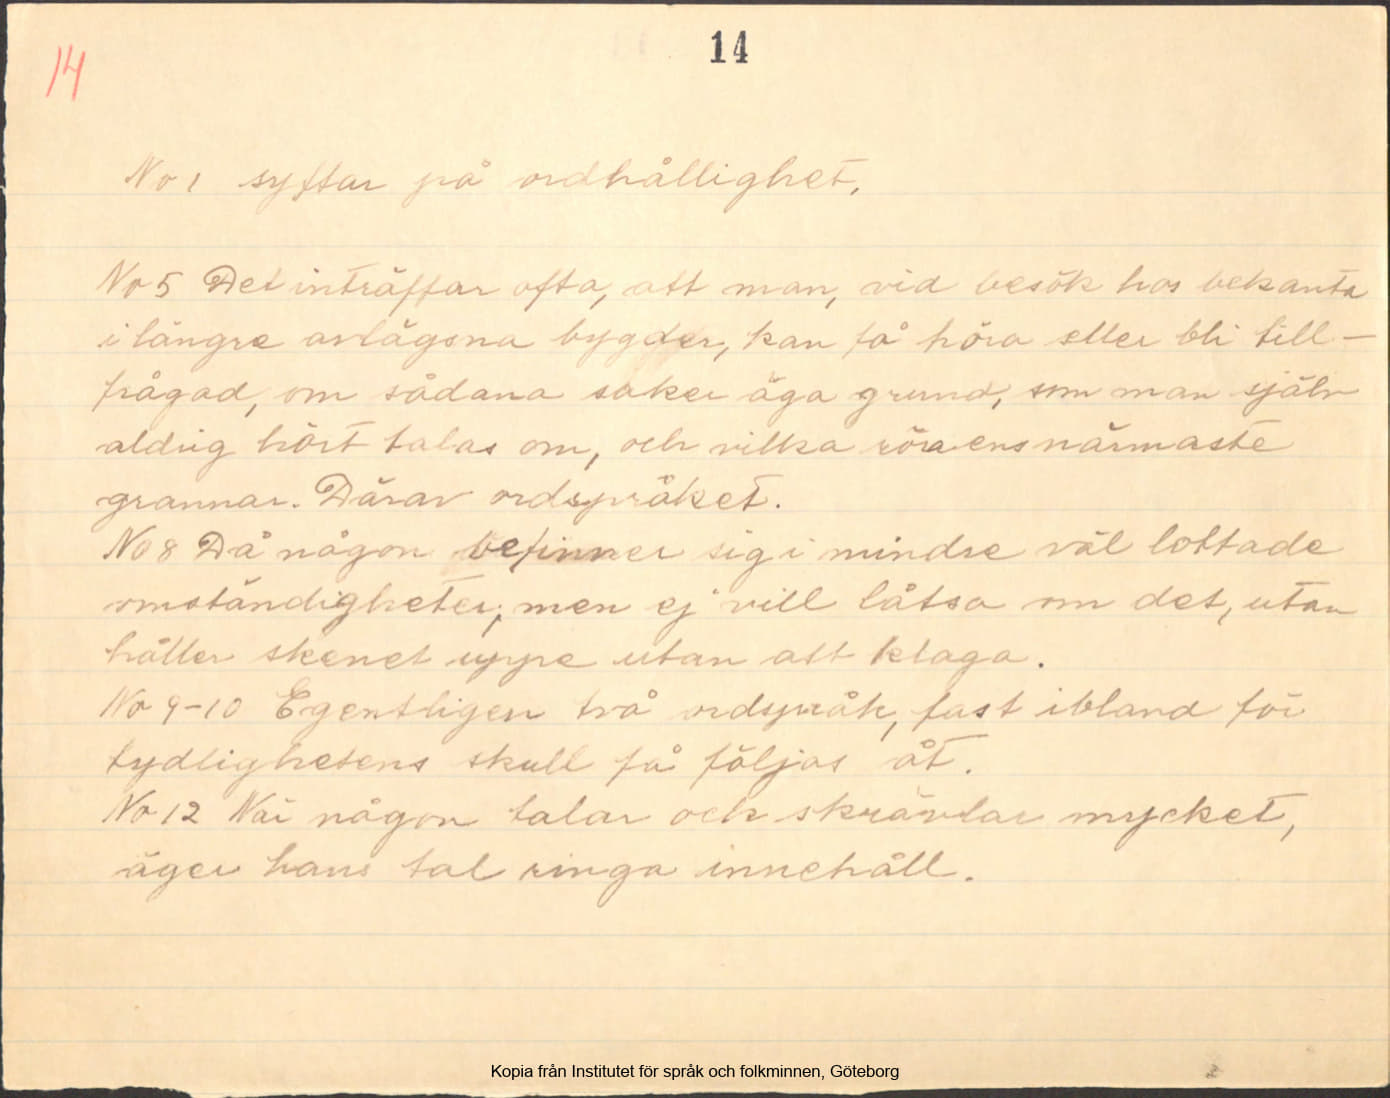 14
14
No 1 syftar på ordhållighet.
No 5 Det inträffar ofta, att man, vid besök hos bekanta
i längre avlägsna bygder, kan få höra eller bli till-
frågad, om sådana saker äga grund, som man själv
aldrig hört talas om, och vilka röra ens närmaste
grannar. Därav ordspråket.
No 8 Då någon befinner sig i mindre väl lottade
omständigheter, men ej vill låtsa om det, utan
håller skenet uppe utan att klaga.
No 9-10 Egentligen två ordspråk, fast ibland för
tydlighetens skull få följas åt.
No 12 När någon talar och skrävlar mycket,
äger hans tal ringa innehåll.
Kopia från Institutet för språk och folkminnen, Göteborg